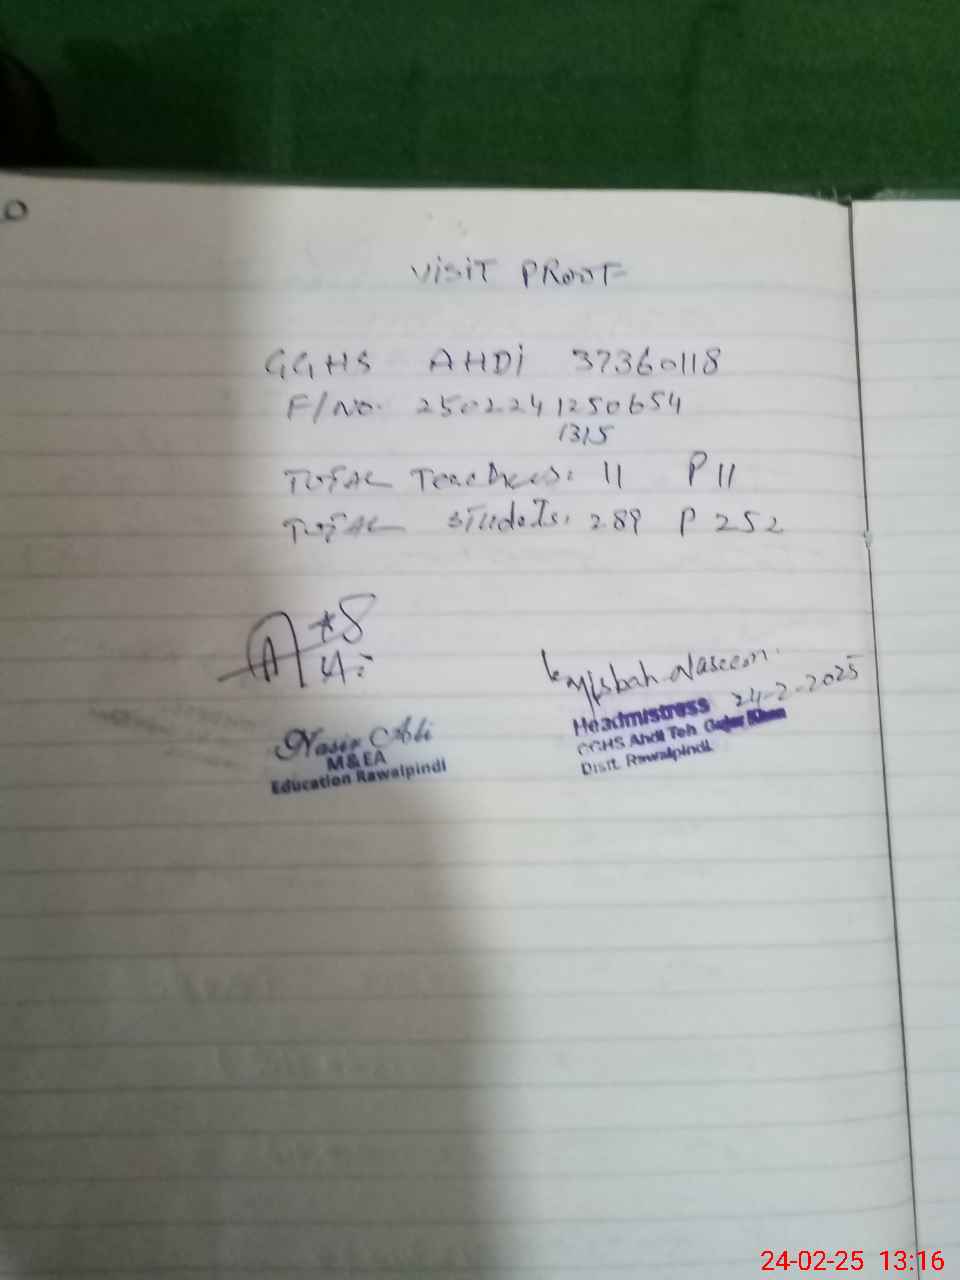 VISIT PROOF
GGHS AHDI 37360118
F/No. 2502241250654
1315
TOTAL Teachers: 11 P 11
TOTAL Students: 289 P 252
Misbah Naseem
24-2-2025
Nasir Ali
M & EA
Education Rawalpindi
Headmistress
GGHS Ahdi Teh. Gujar Khan
Distt. Rawalpindi
24-02-25 13:16